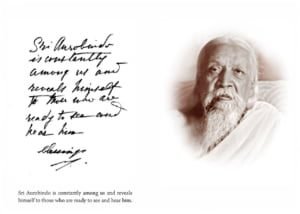 Sri Aurobindo
is constantly
among us and
reveals himself
to those who are
ready to see and
hear him
Blessings
Sri Aurobindo is constantly among us and reveals
himself to those who are ready to see and hear him.